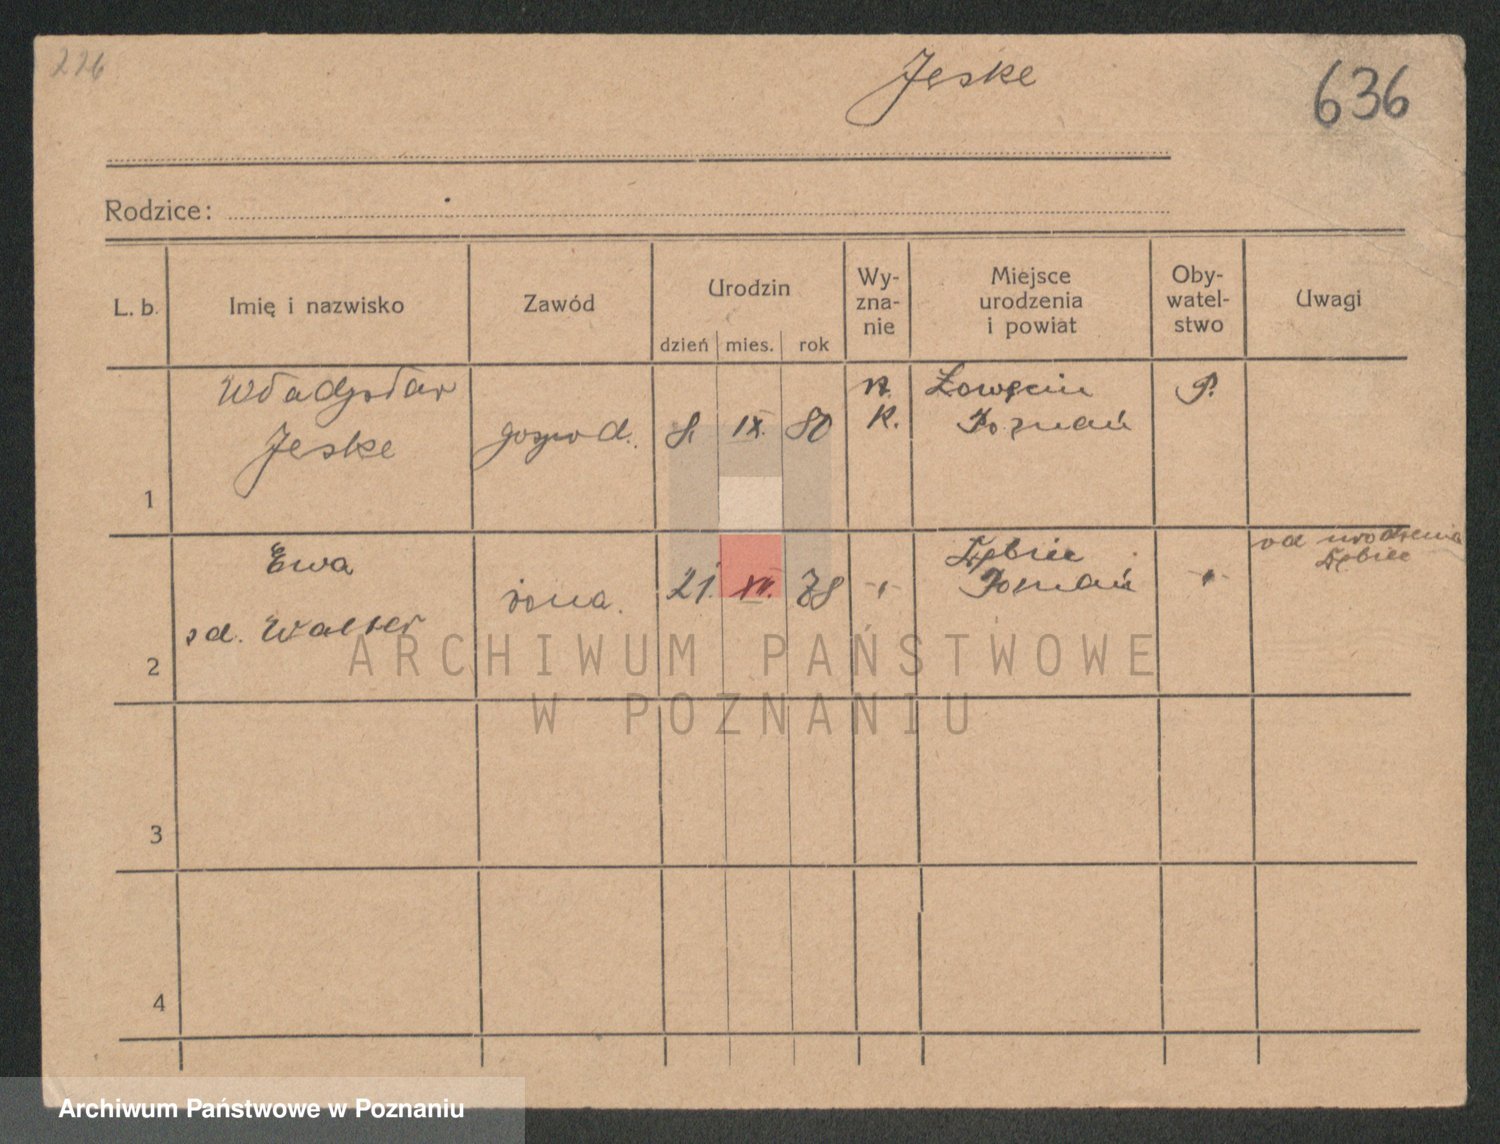 226
Jeske
636
Rodzice:
L. b.
Imię i nazwisko
Zawód
Urodzin
dzień mies. rok
Wy-
zna-
nie
Miejsce
urodzenia
i powiat
Oby-
watel-
stwo
Uwagi
1
Władysław
Jeske
gospod.
8. IX. 80
R.
K.
Łowęcin
Poznań
P.
2
Ewa
zd. Walter
żona.
21. XII. 78
Dębiec
Poznań
od urodzenia
Dębiec
3
4
ARCHIWUM PAŃSTWOWE
W POZNANIU
Archiwum Państwowe w Poznaniu